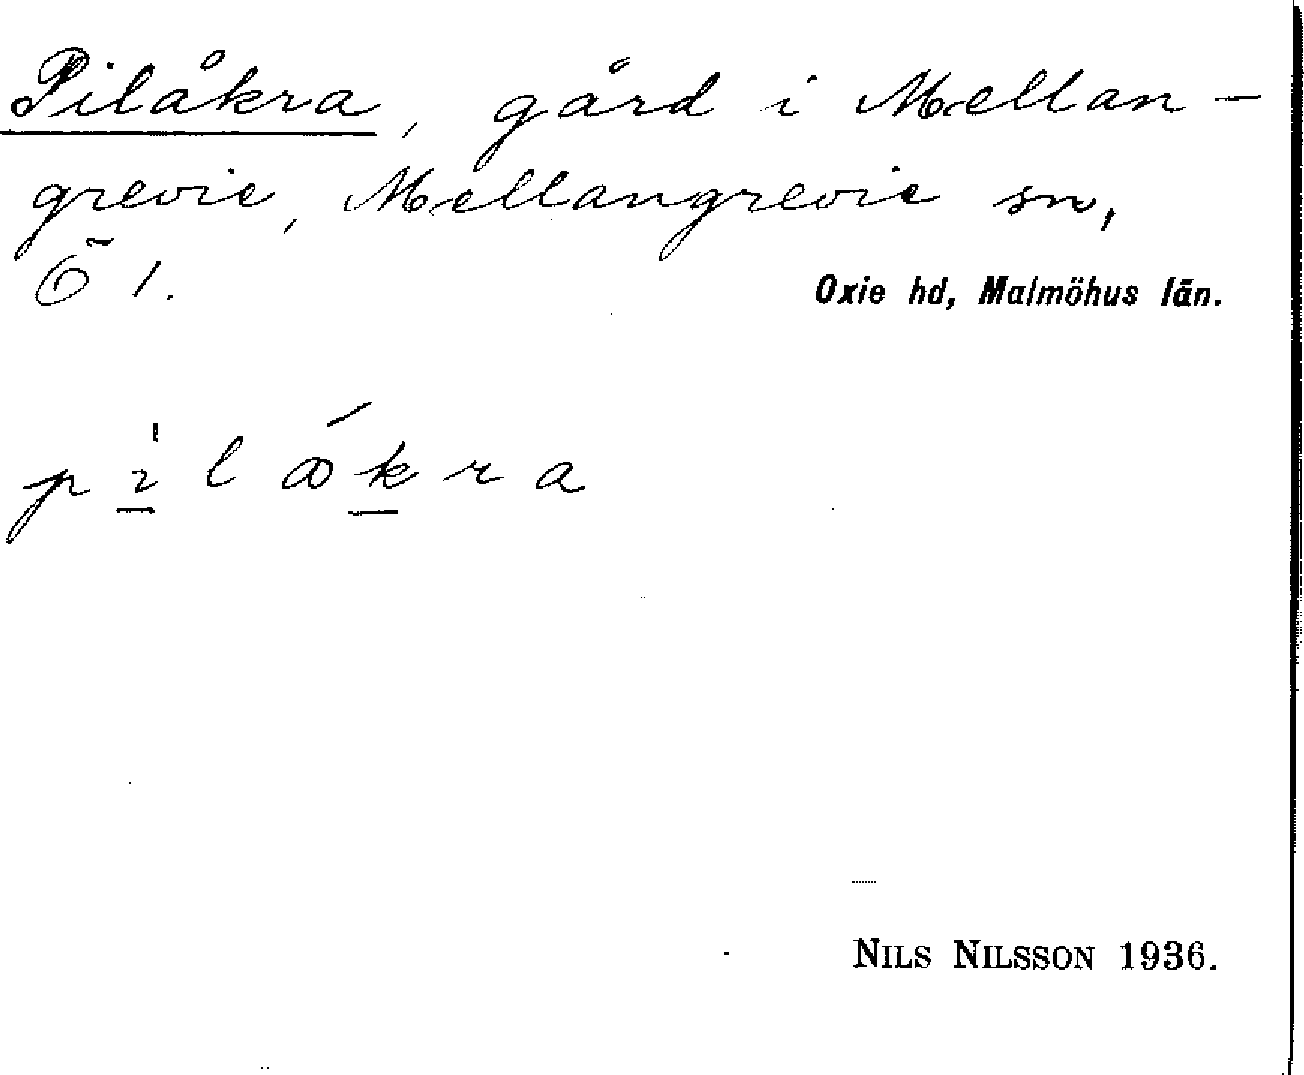 Pilåkra, gård i Mellan-
grevie, Mellangrevie sn,
Ö 1.
Oxie hd, Malmöhus län.
NILS NILSSON 1936.